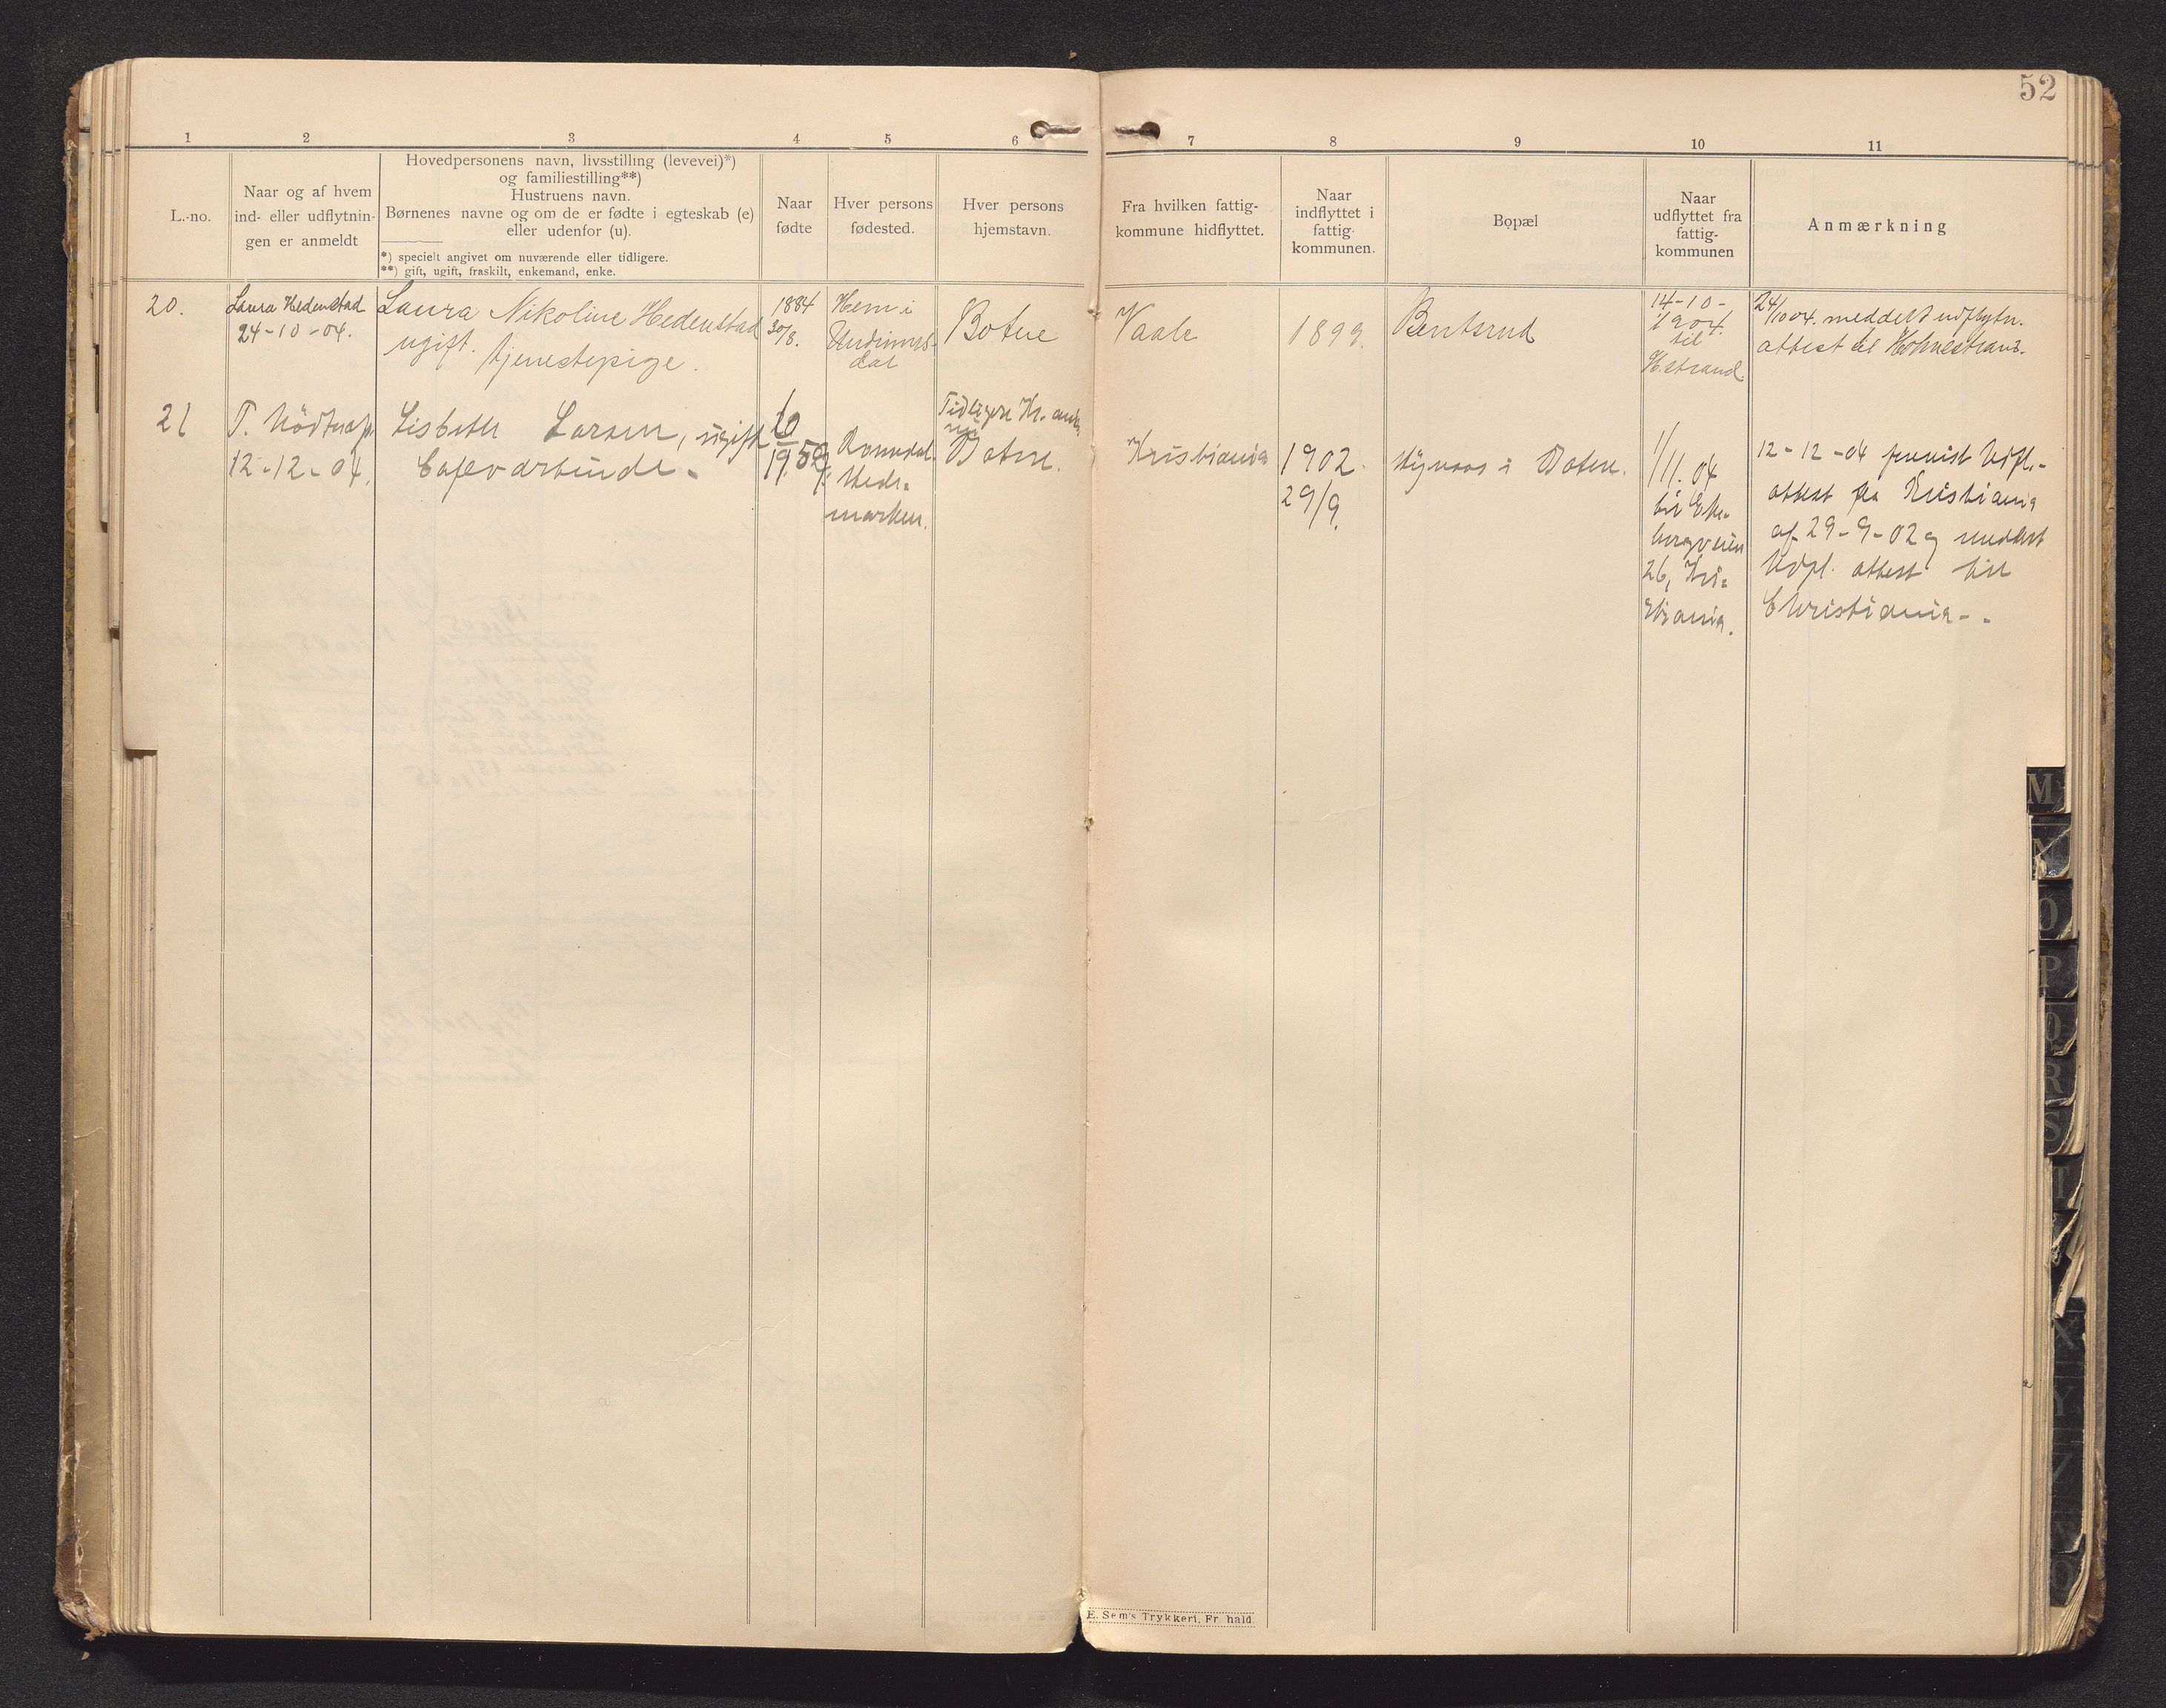 52
1 2 3 4 5 6 7 8 9 10 11
L.-no.
Naar og af hvem
ind- eller udflytnin-
gen er anmeldt
Hovedpersonens navn, livsstilling (levevei)*)
og familiestilling**)
Hustruens navn.
Børnenes navne og om de er fødte i egteskab (e)
eller udenfor (u).
*) specielt angivet om nuværende eller tidligere.
**) gift, ugift, fraskilt, enkemand, enke.
Naar
fødte
Hver persons
fødested.
Hver persons
hjemstavn.
Fra hvilken fattig-
kommune hidflyttet.
Naar
indflyttet i
fattig-
kommunen.
Bopæl
Naar
udflyttet fra
fattig-
kommunen
Anmærkning
20.
Laura Hedenstad
24-10-04.
Laura Nikoline Hedenstad
ugift. tjenestepige.
1884
30/8.
Hem i
dal
Botne
Vaale
1899.
Bentsrud
14-10-
1904.
til
H.strand.
24/10 04. meddelt udflytn.
attest til Holmestrand.
21
12-12-04.
Lisbeth Larsen, ugift
Cafevartinde.
10
19. 59
Romedal
Hede-
marken.
Tidligere
nu
Botne.
Kristiania
1902.
29/9.
i Botne.
1/11. 04
til Eke-
bergveien
26, Kri-
stiania.
12-12-04 Udfl.-
attest fra Kristiania
af 29-9-02 og meddelt
Udfl. attest til
Christiania.
M
N
O
P
Q
R
S
T
X
Y
Z
E. Sem's Trykkeri, Fr.hald.